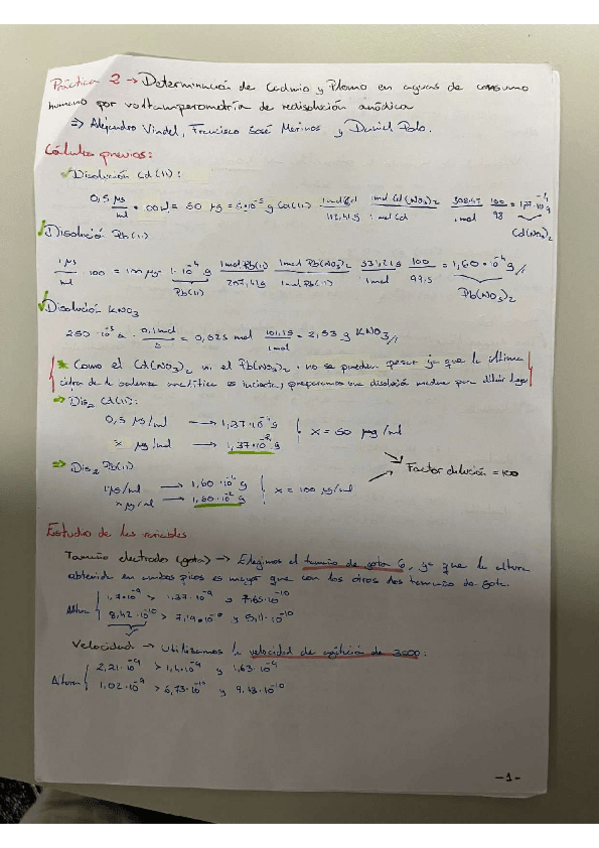 Práctica 2 → Determinación de Cadmio y Plomo en aguas de consumo
humano por voltamperometría de redisolución anódica
⇒ Alejandro Vindel, Francisco José Merinos y Daniel Polo.
Cálculos previos:
Disolución Cd(II):
0,5 μg/ml · 100 ml = 50 μg = 5·10⁻⁵ g Cd(II) 1 mol Cd/112,41 g 1 mol Cd(NO₃)₂/1 mol Cd 308,47/1 mol 100/98 = 1,37·10⁻⁴ g
Cd(NO₃)₂
Disolució Pb(II)
1 μg/ml · 100 = 100 μg = 1·10⁻⁴ g 1 mol Pb(II)/207,2 g 1 mol Pb(NO₃)₂/1 mol Pb(II) 331,21 g/1 mol 100/99,5 = 1,60·10⁻⁴ g
Pb(II) Pb(NO₃)₂
Disolución KNO₃
250·10⁻³ · 0,1 mol = 0,025 mol 101,1 g/1 mol = 2,53 g KNO₃
* Como el Cd(NO₃)₂ el Pb(NO₃)₂ no se pueden pesar ya que la última
cifra de la balanza analítica es incierta, preparamos una disolución madre para diluir luego
⇒ Dis Cd(II):
0,5 μg/ml → 1,37·10⁻⁴ g
x μg/ml → 1,37·10⁻² g
x = 50 μg/ml
⇒ Dis Pb(II)
1 μg/ml → 1,60·10⁻⁴ g
x μg/ml → 1,60·10⁻² g
x = 100 μg/ml
Factor dilución = 100
Estudio de las variables
Tamaño electrodo (gota) → Elegimos el tamaño de gota 6, ya que la altura
obtenida en ambos picos es mayor que con los otros dos tamaños de gota.
1,7·10⁻⁹ > 1,37·10⁻⁹ y 7,65·10⁻¹⁰
Altura
8,42·10⁻¹⁰ > y 5,11·10⁻¹⁰
Velocidad → Utilizamos la velocidad de agitación de 3000:
2,21·10⁻⁹ > 1,4·10⁻⁹ y 1,63·10⁻⁹
Altura
1,02·10⁻⁹ > 6,73·10⁻¹⁰ y 9,13·10⁻¹⁰
-1-